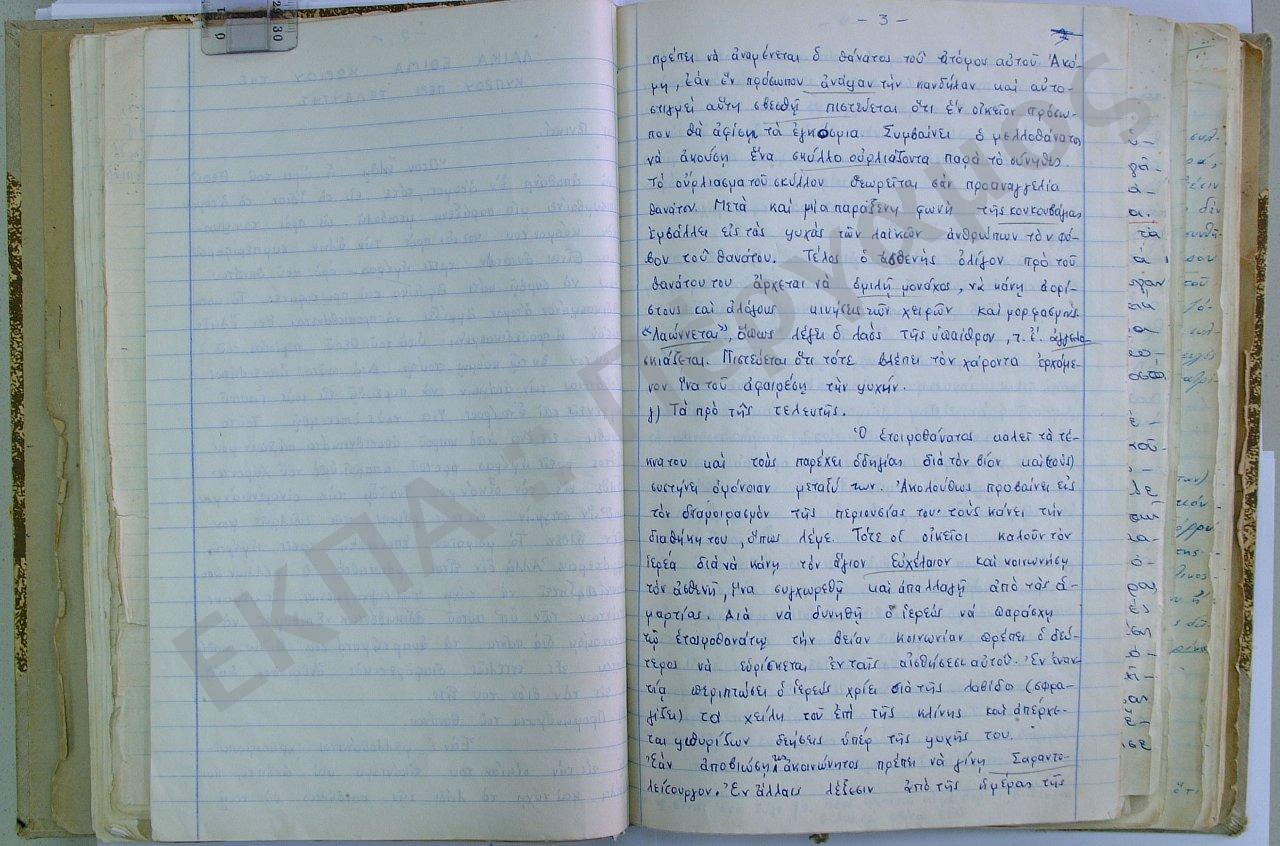 - 3 -
πρέπει νὰ ἀναμένεται ὁ θάνατος τοῦ ἀτόμου αὐτοῦ. Ἀκό-
μη, ἐὰν ἓν πρόσωπον ἀνάψαν τὴν κανδήλαν καὶ αὐτο-
στιγμεὶ αὕτη σβεσθῇ πιστεύεται ὅτι ἓν οἰκεῖον πρόσω-
πον θὰ ἀφίσῃ τὰ ἐγκόσμια. Συμβαίνει ὁ μελλοθάνατος
νὰ ἀκούσῃ ἕνα σκύλλο οὐρλιάζοντα παρὰ τὸ σύνηθες.
Τὸ οὔρλιασμα τοῦ σκύλλου θεωρεῖται σὰν προαναγγελία
θανάτου. Μετὰ καὶ μία παράξενη φωνὴ τῆς κουκουβάγιας
ἐμβάλλει εἰς τὰς ψυχὰς τῶν λαϊκῶν ἀνθρώπων τὸν φό-
βον τοῦ θανάτου. Τέλος ὁ ἀσθενὴς ὀλίγον πρὸ τοῦ
θανάτου του ἄρχεται νὰ ὁμιλῇ μονάχος, νὰ κάνῃ ἀορί-
στους καὶ ἀλόγους κινήσεις τῶν χειρῶν καὶ μορφασμούς
"Λαώννεται", ὅπως λέγει ὁ λαὸς τῆς ὑπαίθρου, τ. ἔ. ἀγγελο
σκιάζεται. Πιστεύεται ὅτι τότε βλέπει τὸν χάροντα ἐρχόμε-
νον ἵνα τοῦ ἀφαιρέσῃ τὴν ψυχήν.
γ) Τὰ πρὸ τῆς τελευτῆς.
Ὁ ἑτοιμοθάνατος καλεῖ τὰ τέ-
κνα του καὶ τοὺς παρέχει ὁδηγίας διὰ τὸν βίον καὶ (τοὺς)
συστήνει ὁμόνοιαν μεταξύ των. Ἀκολούθως προβαίνει εἰς
τὸν διαμοιρασμὸν τῆς περιουσίας του· τοὺς κάνει τὴν
διαθήκη του, ὅπως λέμε. Τότε οἱ οἰκεῖοι καλοῦν τὸν
ἱερέα διὰ νὰ κάνῃ τὸν ἅγιον Εὐχέλαιον καὶ κοινωνήσῃ
τὸν ἀσθενῆ, ἵνα συγχωρεθῇ καὶ ἀπαλλαγῇ ἀπὸ τὰς ἁ-
μαρτίας. Διὰ νὰ δυνηθῇ ὁ ἱερεὺς νὰ παράσχῃ
τῷ ἑτοιμοθανάτῳ τὴν θείαν κοινωνίαν πρέπει ὁ δεύ-
τερος νὰ εὑρίσκεται ἐν ταῖς αἰσθήσεσι αὐτοῦ. Ἐν ἐναν-
τίᾳ περιπτώσει ὁ ἱερεὺς χρίει διὰ τῆς λαβίδος (σφρα-
γίζει) τὰ χείλη τοῦ ἐπὶ τῆς κλίνης καὶ ἀπέρχε-
ται ψιθυρίζων δεήσεις ὑπὲρ τῆς ψυχῆς του.
Ἐὰν ἀποβιώσῃ τις ἀκοινώνητος πρέπει νὰ γίνῃ Σαραντο-
λείτουργον. Ἐν ἄλλαις λέξεσιν ἀπὸ τῆς ἡμέρας τῆς
ΕΚΠΑ :: Πέργαμος